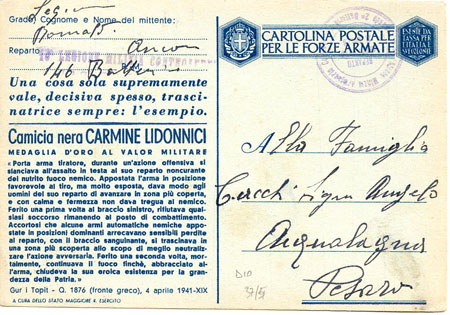 Grado, Cognome e Nome del mittente:
Reparto
146
Una cosa sola supremamente
vale, decisiva spesso, trasci-
natrice sempre: l'esempio.
Camicia nera CARMINE LIDONNICI
MEDAGLIA D'ORO AL VALOR MILITARE
« Porta arma tiratore, durante un'azione offensiva si
slanciava all'assalto in testa al suo reparto noncurante
del nutrito fuoco nemico. Appostata l'arma in posizione
favorevole al tiro, ma molto esposta, dava modo agli
uomini del suo reparto di avanzare in zona più coperta,
e con calma e fermezza non dava tregua al nemico.
Ferito una prima volta al braccio sinistro, rifiutava qual-
siasi soccorso rimanendo al posto di combattimento.
Accortosi che alcune armi automatiche nemiche appo-
state in posizioni dominanti arrecavano sensibili perdite
al reparto, con il braccio sanguinante, si trascinava in
una zona più scoperta allo scopo di meglio neutraliz-
zare l'azione avversaria. Ferito una seconda volta, mor-
talmente, continuava il fuoco finchè, abbracciato al-
l'arma, chiudeva la sua eroica esistenza per la gran-
dezza della Patria. »
Gur i Topit - Q. 1876 (fronte greco), 4 aprile 1941-XIX
A CURA DELLO STATO MAGGIORE R. ESERCITO
CARTOLINA POSTALE
PER LE FORZE ARMATE
ESENTE DA
TASSA PER
L'ITALIA E
SUE COLONIE
Alla Famiglia
Cecchi Sign Angelo
Acqualagna
Pesaro